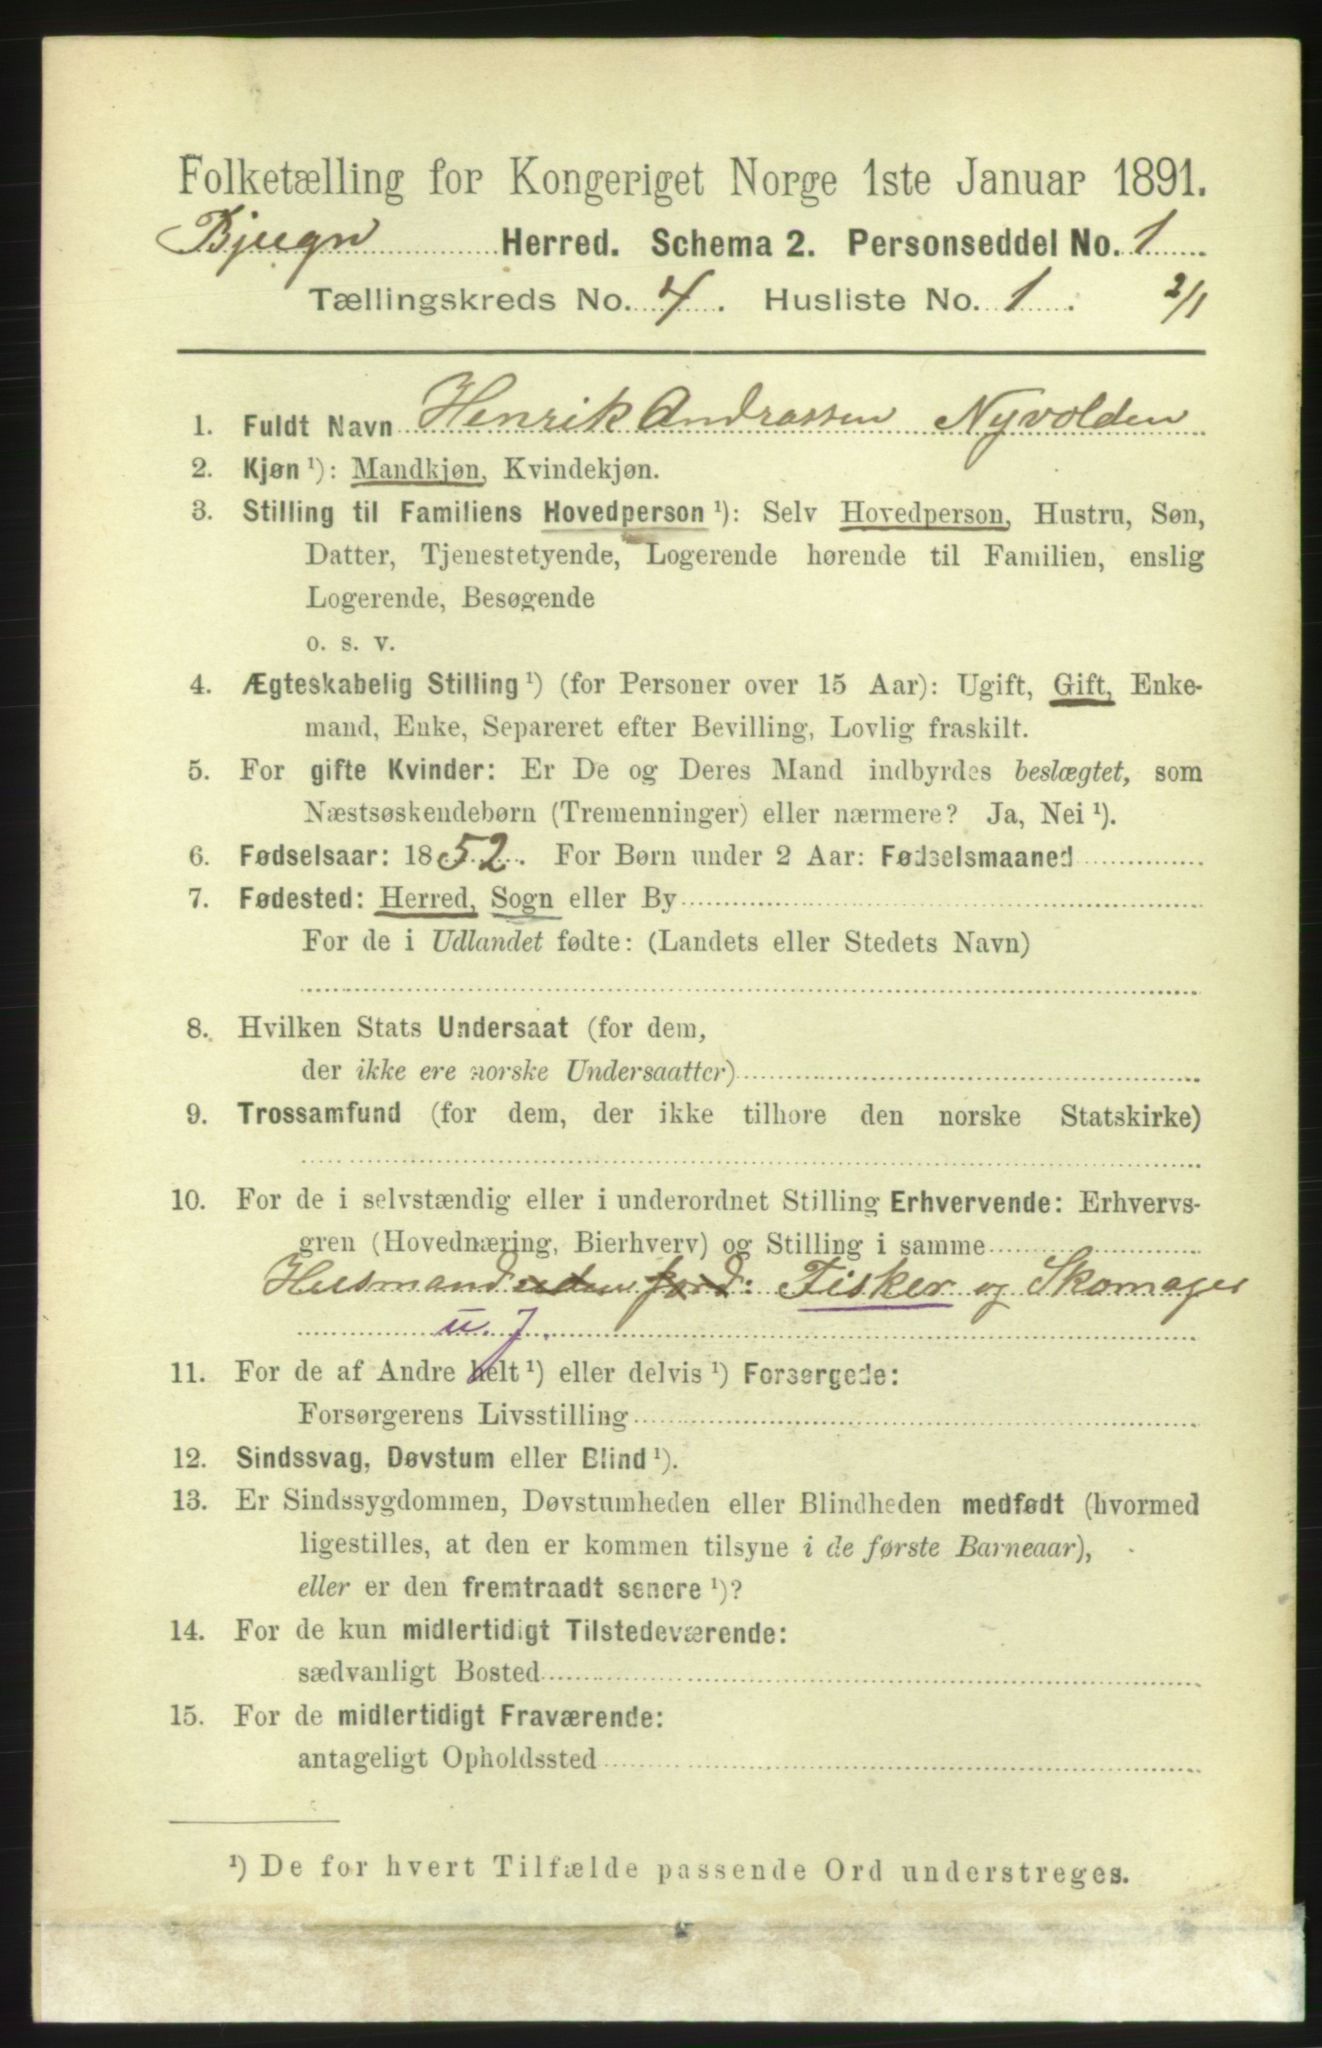 Folketælling for Kongeriget Norge 1ste Januar 1891.
Bjugn Herred. Schema 2. Personseddel No. 1
Tællingskreds No. 4. Husliste No. 1. 2/1
1. Fuldt Navn Henrik Andrassen Nyvolden
2. Kjøn¹): Mandkjøn, Kvindekjøn.
3. Stilling til Familiens Hovedperson¹): Selv Hovedperson, Hustru, Søn,
Datter, Tjenestetyende, Logerende hørende til Familien, enslig
Logerende, Besøgende
o. s. v.
4. Ægteskabelig Stilling¹) (for Personer over 15 Aar): Ugift, Gift, Enke-
mand, Enke, Separeret efter Bevilling, Lovlig fraskilt.
5. For gifte Kvinder: Er De og Deres Mand indbyrdes beslægtet, som
Næstsøskendebørn (Tremenninger) eller nærmere? Ja, Nei¹).
6. Fødselsaar: 1852. For Børn under 2 Aar: Fødselsmaaned
7. Fødested: Herred, Sogn eller By
For de i Udlandet fødte: (Landets eller Stedets Navn)
8. Hvilken Stats Undersaat (for dem,
der ikke ere norske Undersaatter)
9. Trossamfund (for dem, der ikke tilhore den norske Statskirke)
10. For de i selvstændig eller i underordnet Stilling Erhvervende: Erhvervs-
gren (Hovednæring, Bierhverv) og Stilling i samme
Husmand uden jord: Fisker og Skomager
u. J.
11. For de af Andre helt¹) eller delvis¹) Forsørgede:
Forsørgerens Livsstilling
12. Sindssvag, Døvstum eller Blind¹).
13. Er Sindssygdommen, Døvstumheden eller Blindheden medfødt (hvormed
ligestilles, at den er kommen tilsyne i de første Barneaar),
eller er den fremtraadt senere¹)?
14. For de kun midlertidigt Tilstedeværende:
sædvanligt Bosted
15. For de midlertidigt Fraværende:
antageligt Opholdssted
¹) De for hvert Tilfælde passende Ord understreges.